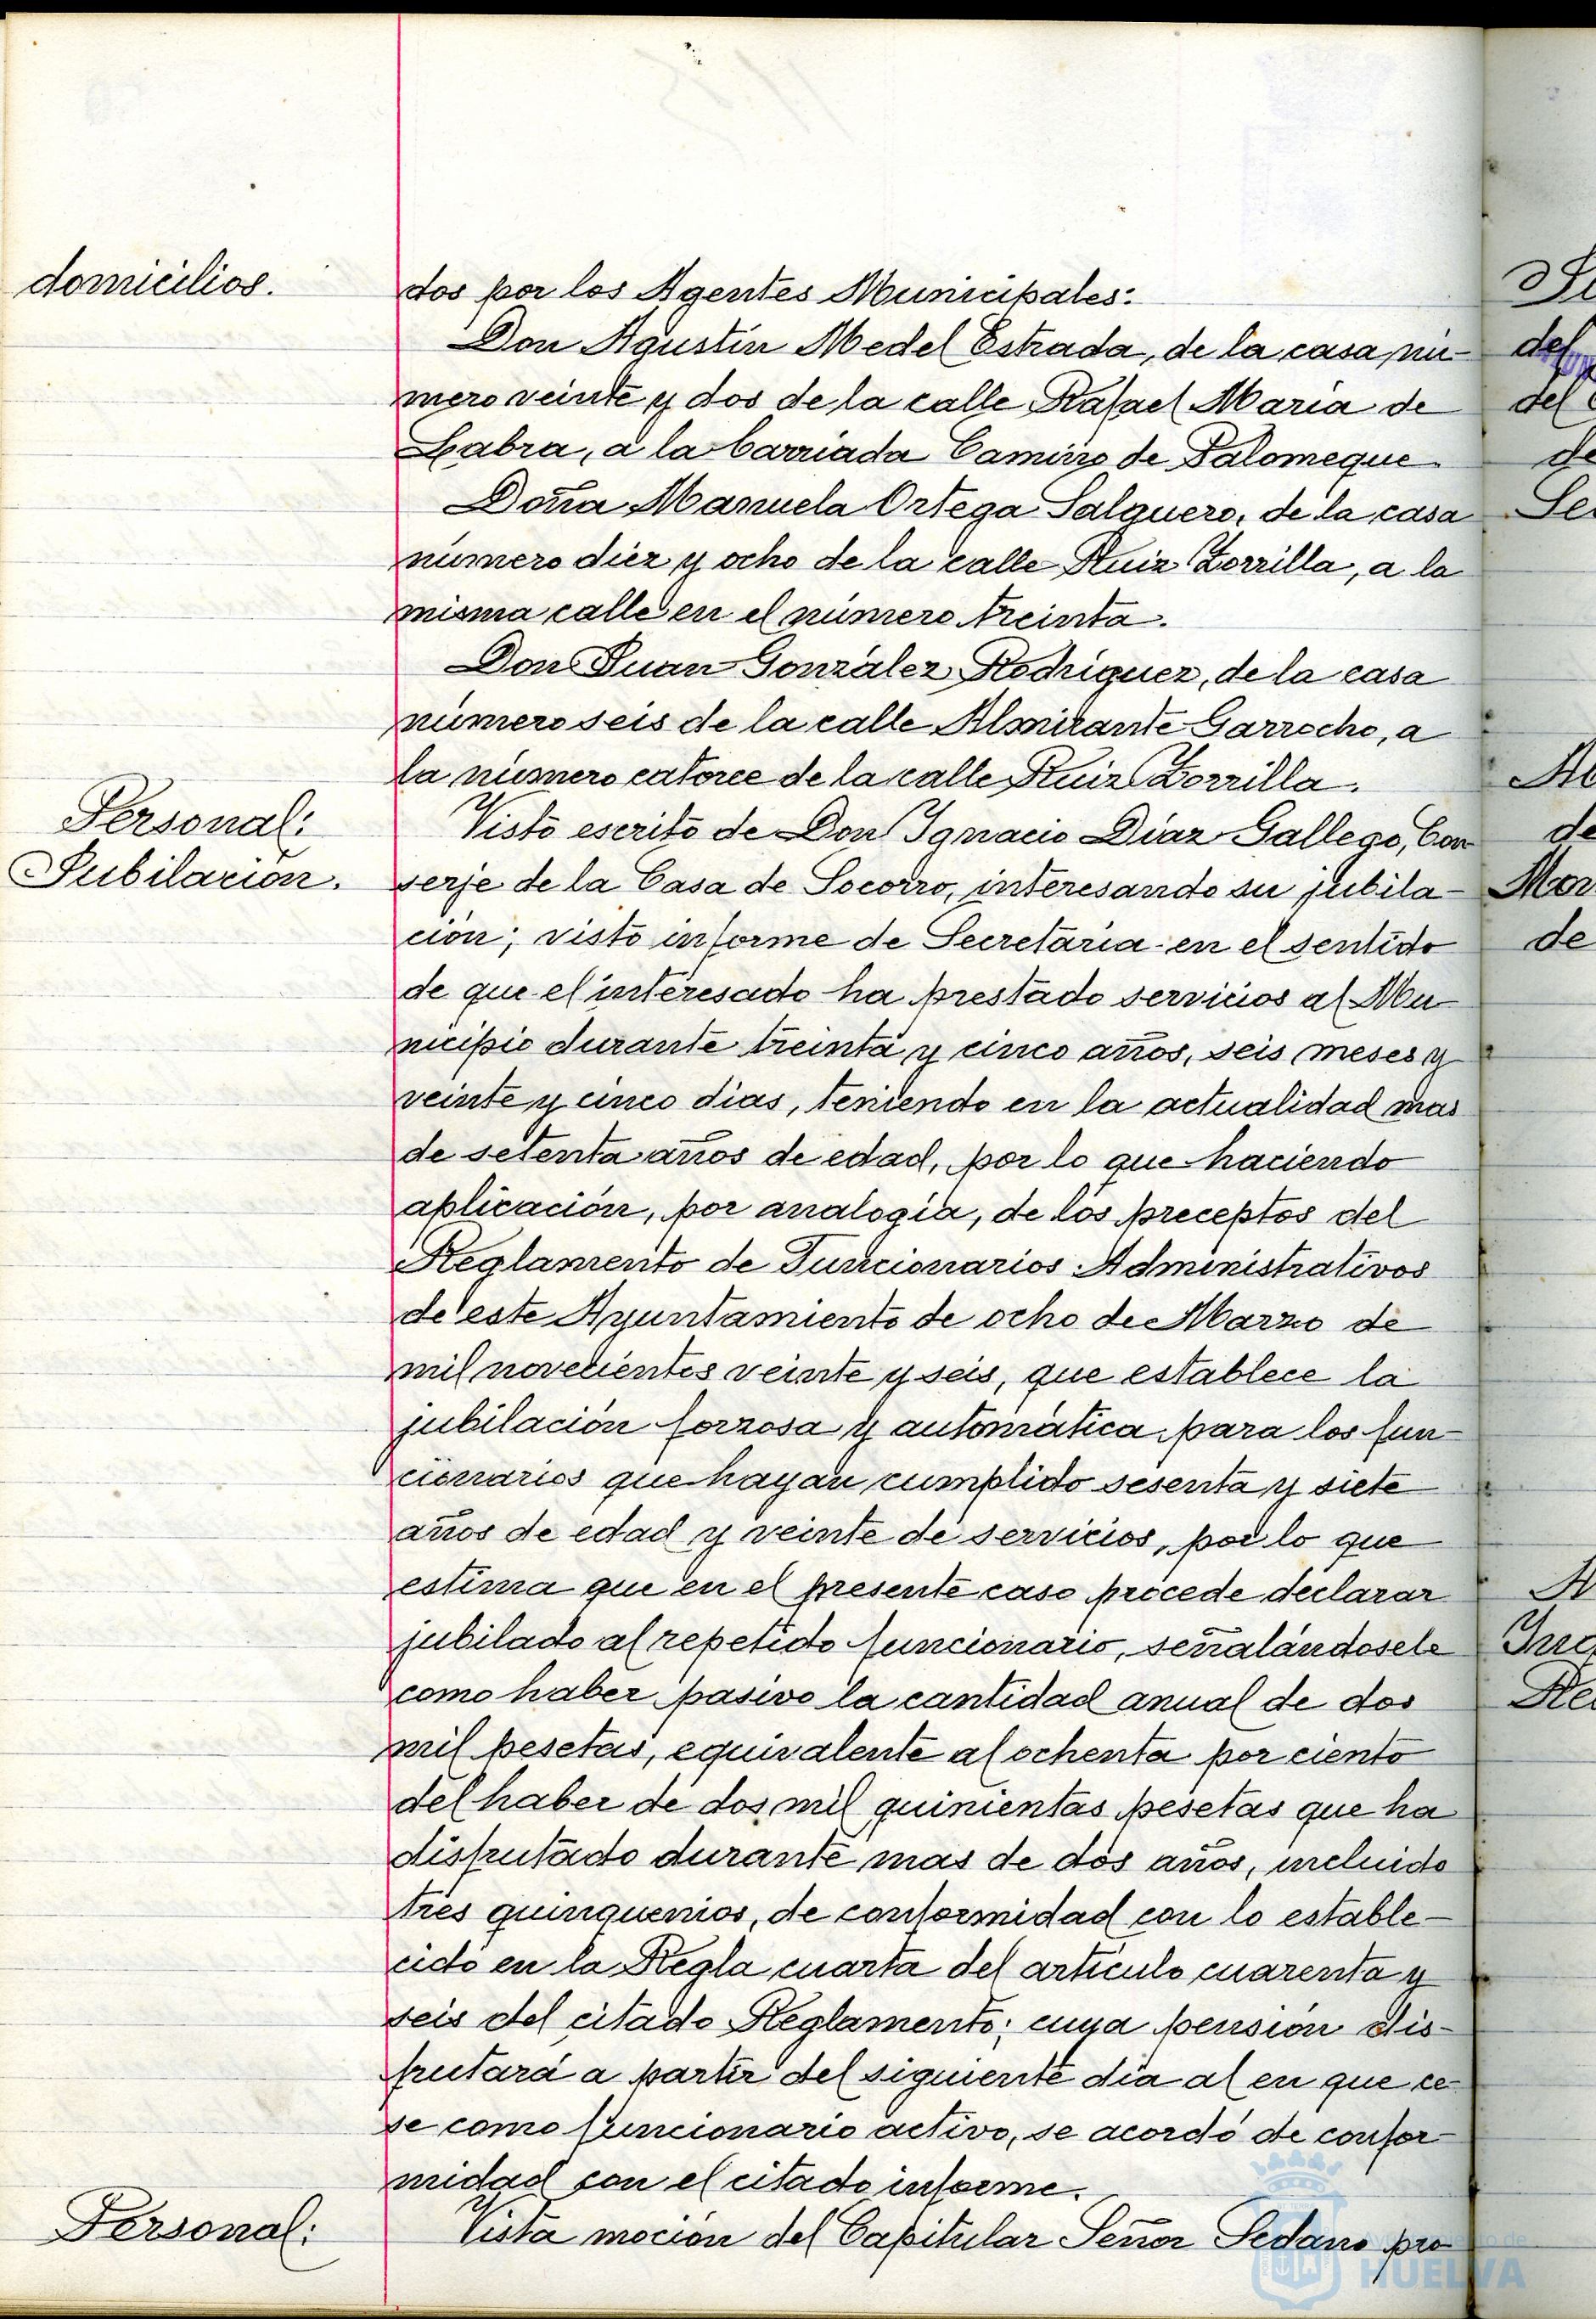 domicilios.
dos por los Agentes Municipales:
Don Agustin Medel Estrada, de la casa nú-
mero veinte y dos de la calle Rafael Maria de
Labra, a la barriada Camino de Palomeque.
Doña Manuela Ortega Salguero, de la casa
número diez y ocho de la calle Ruiz Zorrilla, a la
misma calle en el número treinta.
Don Juan González Rodriguez, de la casa
número seis de la calle Almirante Garrocho, a
la número catorce de la calle Ruiz Zorrilla.
Personal:
Jubilación.
Visto escrito de Don Ignacio Diaz Gallego, Con
serje de la Casa de Socorro, interesando su jubila-
ción; visto informe de Secretaria en el sentido
de que el interesado ha prestado servicios al Mu-
nicipio durante treinta y cinco años, seis meses y
veinte y cinco dias, teniendo en la actualidad mas
de setenta años de edad, por lo que haciendo
aplicación, por analogía, de los preceptos del
Reglamento de Funcionarios Administrativos
de este Ayuntamiento de ocho de Marzo de
mil novecientos veinte y seis, que establece la
jubilación forzosa y automática para los fun-
cionarios que hayan cumplido sesenta y siete
años de edad y veinte de servicios, por lo que
estima que en el presente caso procede declarar
jubilado al repetido funcionario, señalándosele
como haber pasivo la cantidad anual de dos
mil pesetas, equivalente al ochenta por ciento
del haber de dos mil quinientas pesetas que ha
disfrutado durante mas de dos años, incluido
tres quinquenios, de conformidad con lo estable-
cido en la Regla cuarta del artículo cuarenta y
seis del citado Reglamento; cuya pensión dis-
frutará a partir del siguiente día al en que ce-
se como funcionario activo, se acordó de confor-
midad con el citado informe.
Personal:
Vista moción del Capitular Señor Sedano pro
Ayuntamiento de
HUELVA